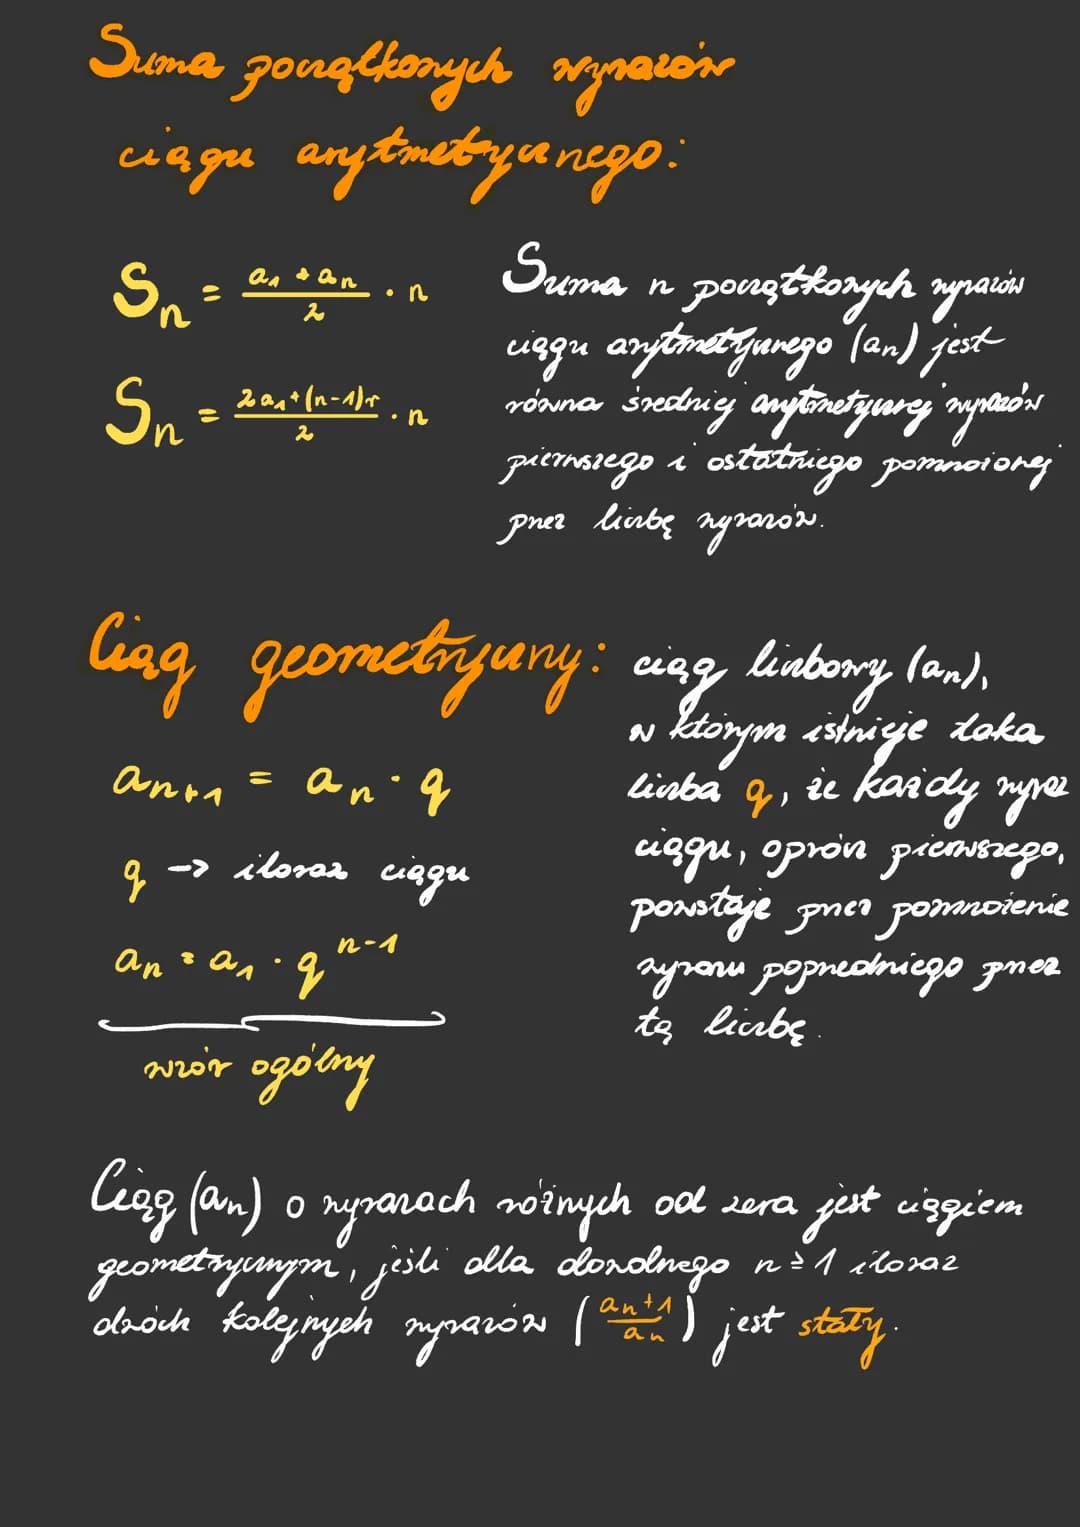 Suma początkowych wyrazów
ciągu arytmetycznego:
Sn = a1 + an / 2 · n
Sn = 2a1 + (n-1)r / 2 · n
Suma n początkowych wyrazów
ciągu arytmetycznego (an) jest
równa średniej arytmetycznej wyrazów
pierwszego i ostatniego pomnożonej
przez liczbę wyrazów.
Ciąg geometryczny:
an+1 = an · q
q -> iloraz ciągu
an = a1 · q^n-1
wzór ogólny
ciąg liczbowy (an),
w którym istnieje taka
liczba q, że każdy wyraz
ciągu, oprócz pierwszego,
powstaje przez pomnożenie
wyrazu poprzedniego przez
tą liczbę.
Ciąg (an) o wyrazach różnych od zera jest ciągiem
geometrycznym, jeśli dla dowolnego n ≥ 1 iloraz
dwóch kolejnych wyrazów (an+1 / an) jest stały.